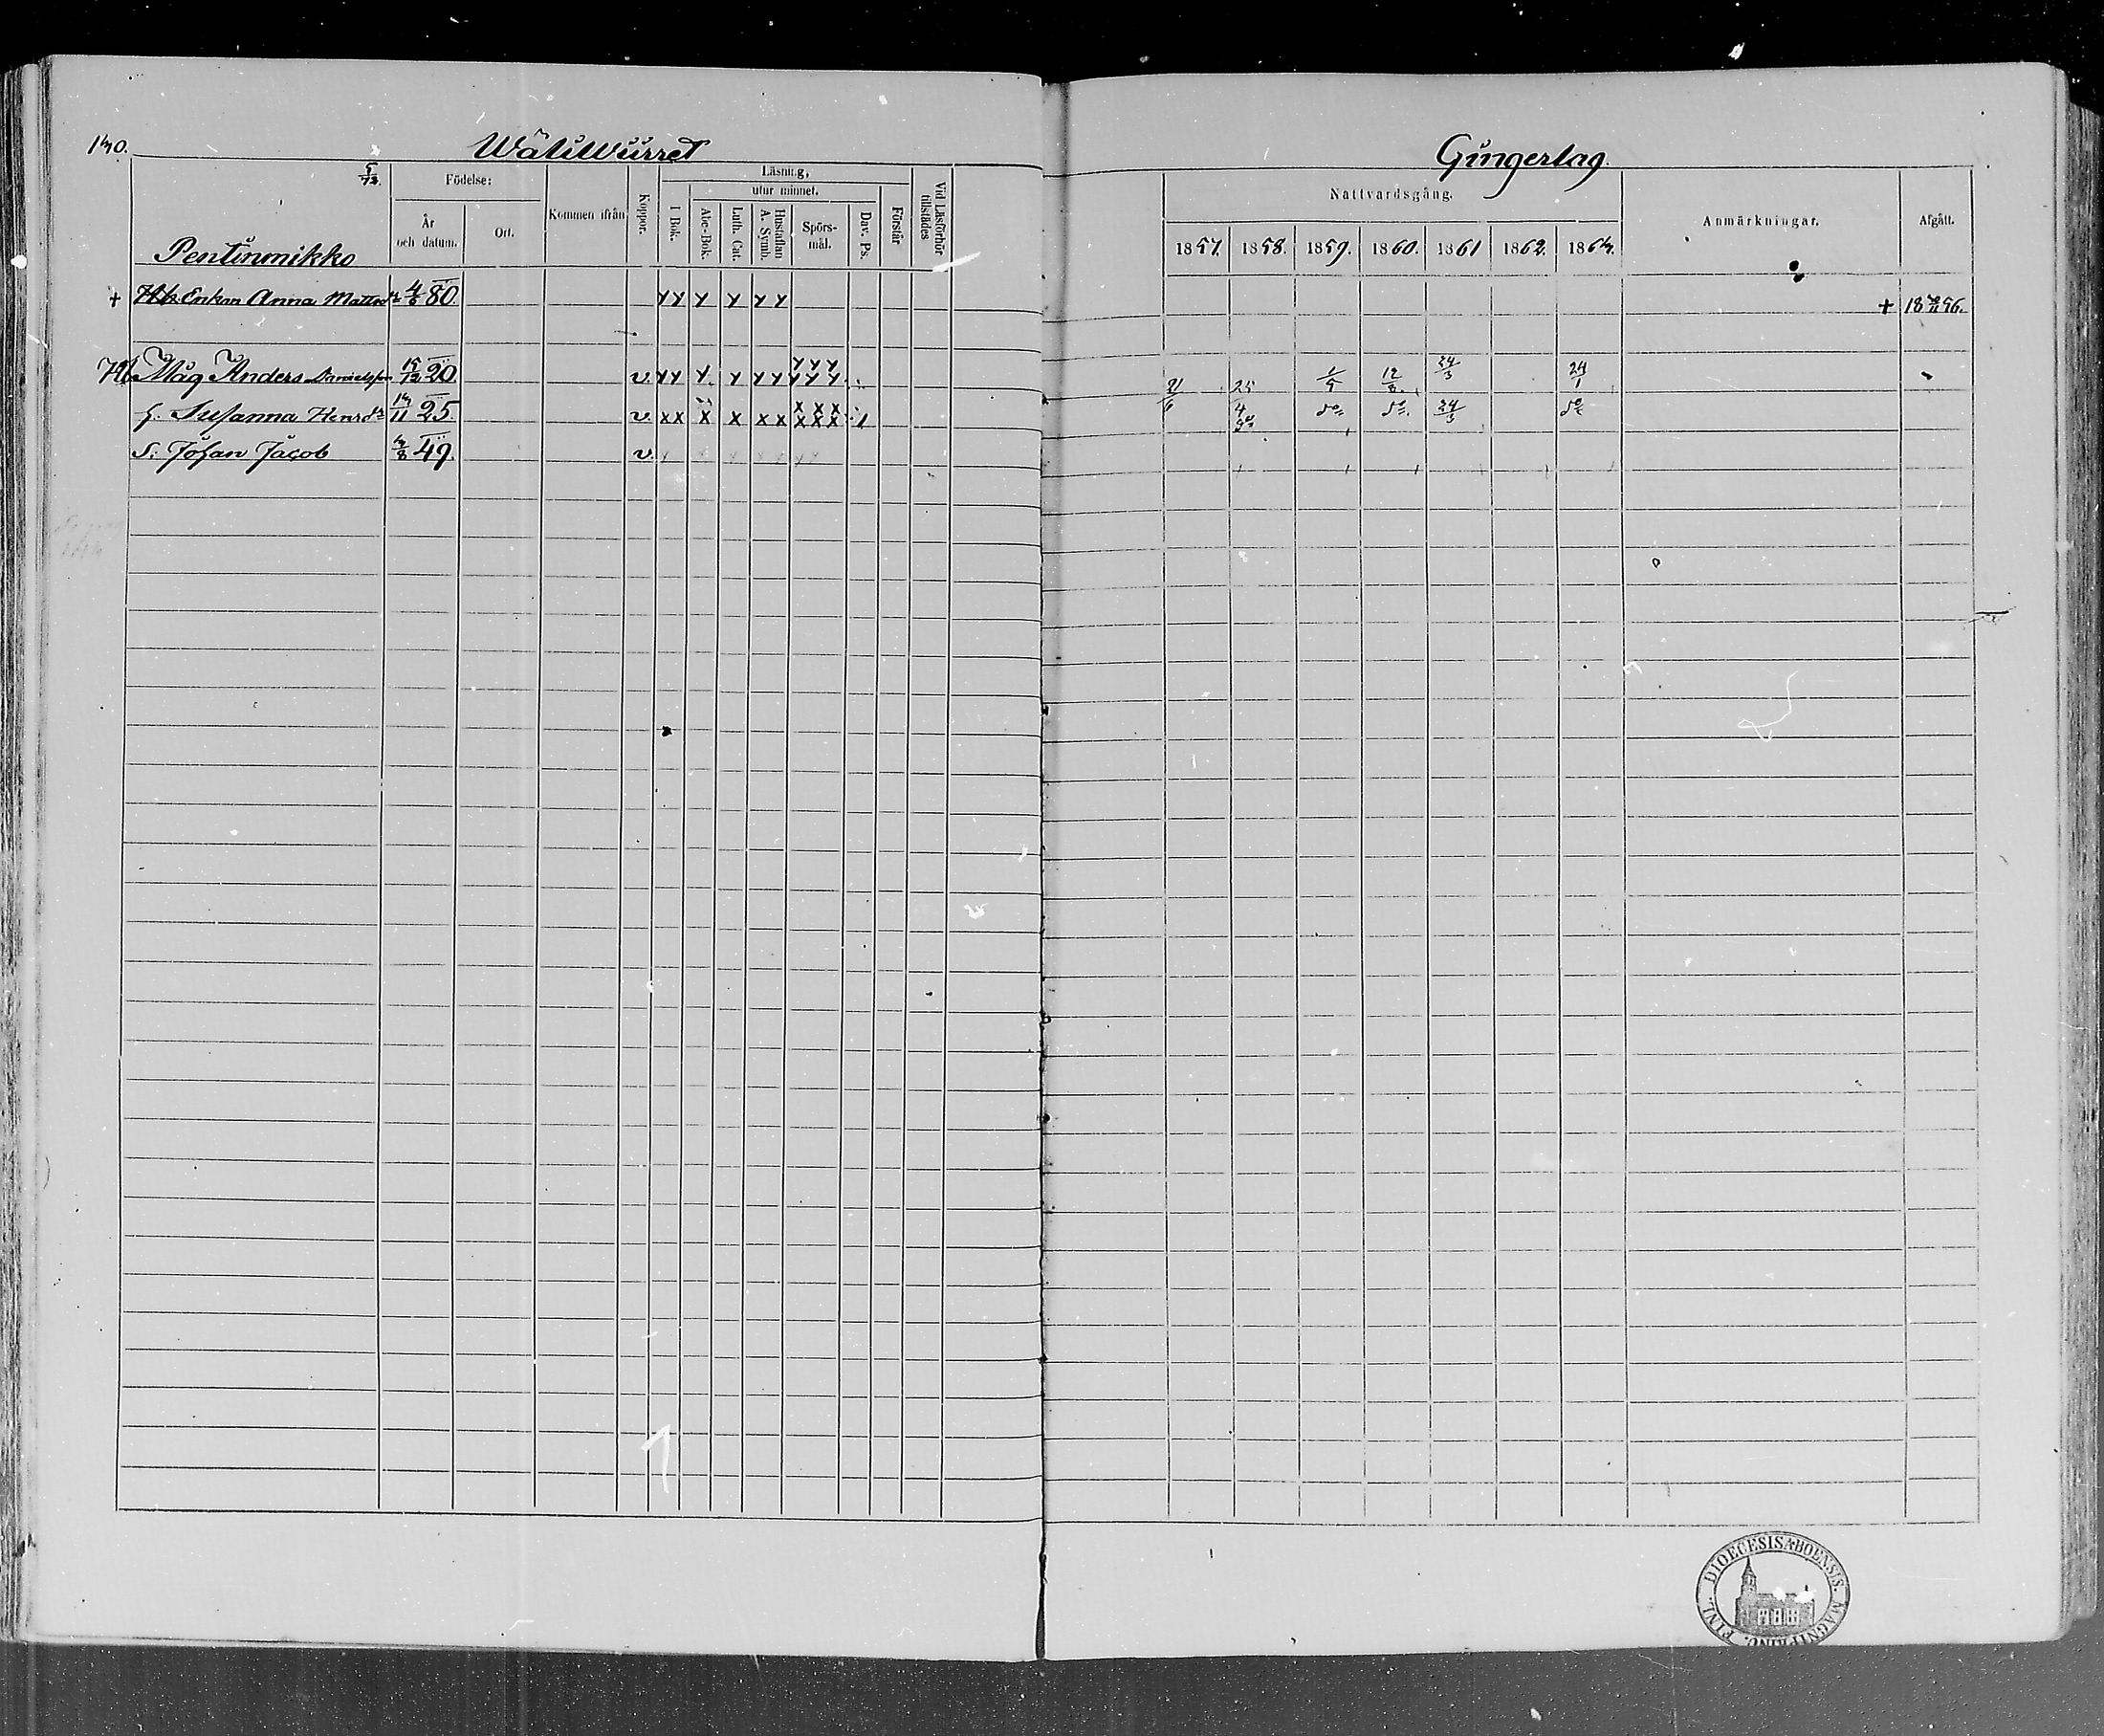 140. WätiWurret Gungerlag.
Pentinmikko
Födelse:
År och datum.
Ort.
Kommen ifrån
Koppor.
Läsning,
utur minnet.
I Bok.
Abc-Bok.
Luth. Cat.
Hustaflan A. Symb.
Spörs-mål.
Dav. Ps.
Förstår
Vid Läsförhör tillstädes
Nattvardsgång.
1857. 1858. 1859. 1860. 1861 1862. 1864.
Anmärkningar.
Afgått.
+ Enkan Anna Mattsdr 4/8 80. YY Y Y YY +
Måg Anders Danielsson 15/12 20. v. YY Y. Y YY YYY YYY 12/8 24/3 24/1
h. Susanna Henrsdr 14/11 25. v. xx x x xx xxx xxx 1 21/6 24/3
S. Johan Jacob 49. v.
DIOECESIS ABOENSIS. MAGNI PRINC. FINL.